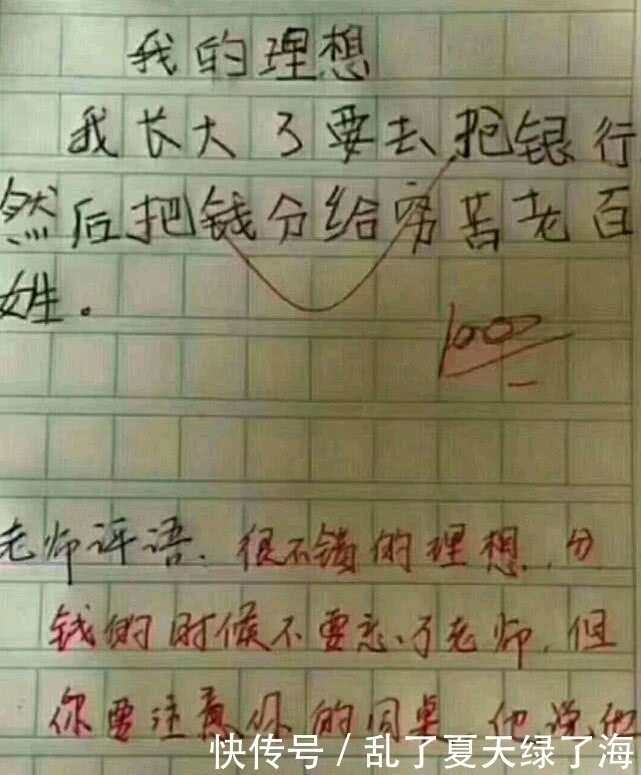 我的理想
我长大了要去抢银行
然后把钱分给穷苦老百
姓。
100
老师评语：很不错的理想，分
钱的时候不要忘了老师，但
你要注意你的同桌 他说他
快传号/乱了夏天绿了海